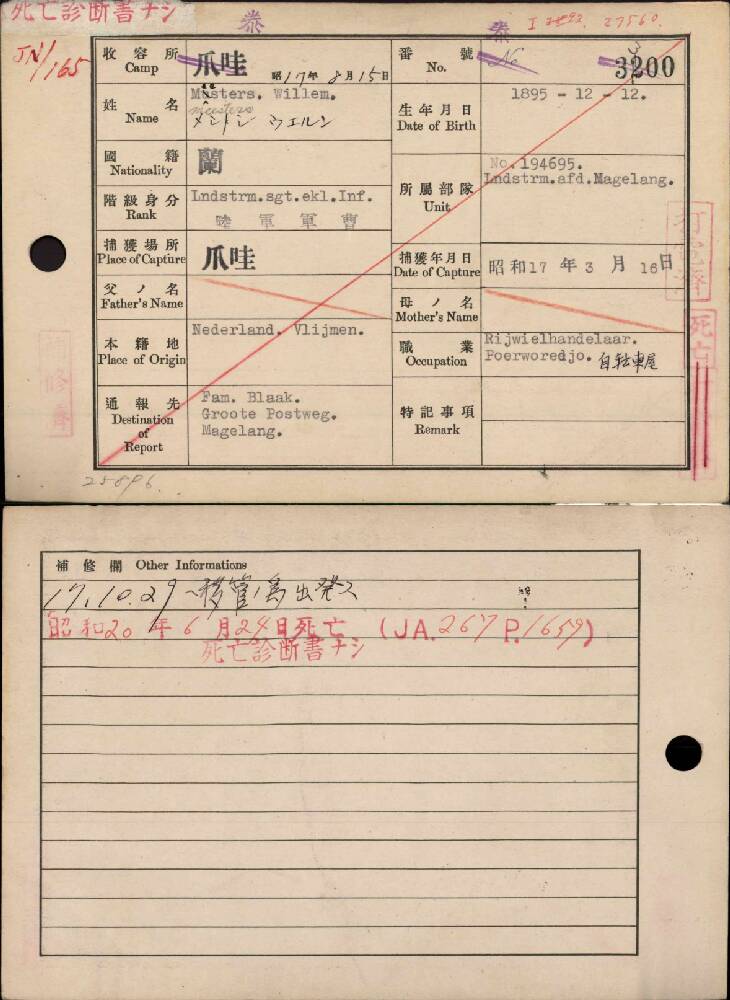 死亡診断書ナシ
泰
泰
I 27560.
JN/165
收容所 Camp
爪哇
昭17年8月15日
番號 No.
No
3200
姓名 Name
Musters. Willem.
meesters
生年月日 Date of Birth
1895 - 12 - 12.
國籍 Nationality
蘭
所属部隊 Unit
No.194695.
Lndstrm.afd.Magelang.
階級身分 Rank
Lndstrm.sgt.ekl.Inf.
陸軍軍曹
捕獲場所 Place of Capture
爪哇
捕獲年月日 Date of Capture
昭和17年3月16日
父ノ名 Father's Name
母ノ名 Mother's Name
本籍地 Place of Origin
Nederland. Vlijmen.
職業 Occupation
Rijwielhandelaar.
Poerworedjo. 自転車屋
通報先 Destination of Report
Fam. Blaak.
Groote Postweg.
Magelang.
特記事項 Remark
死亡
25896.
補修欄 Other Informations
17.10.29 移管ノ為出発ス
昭和20年6月24日死亡 (JA.267 P.1659)
死亡診断書ナシ